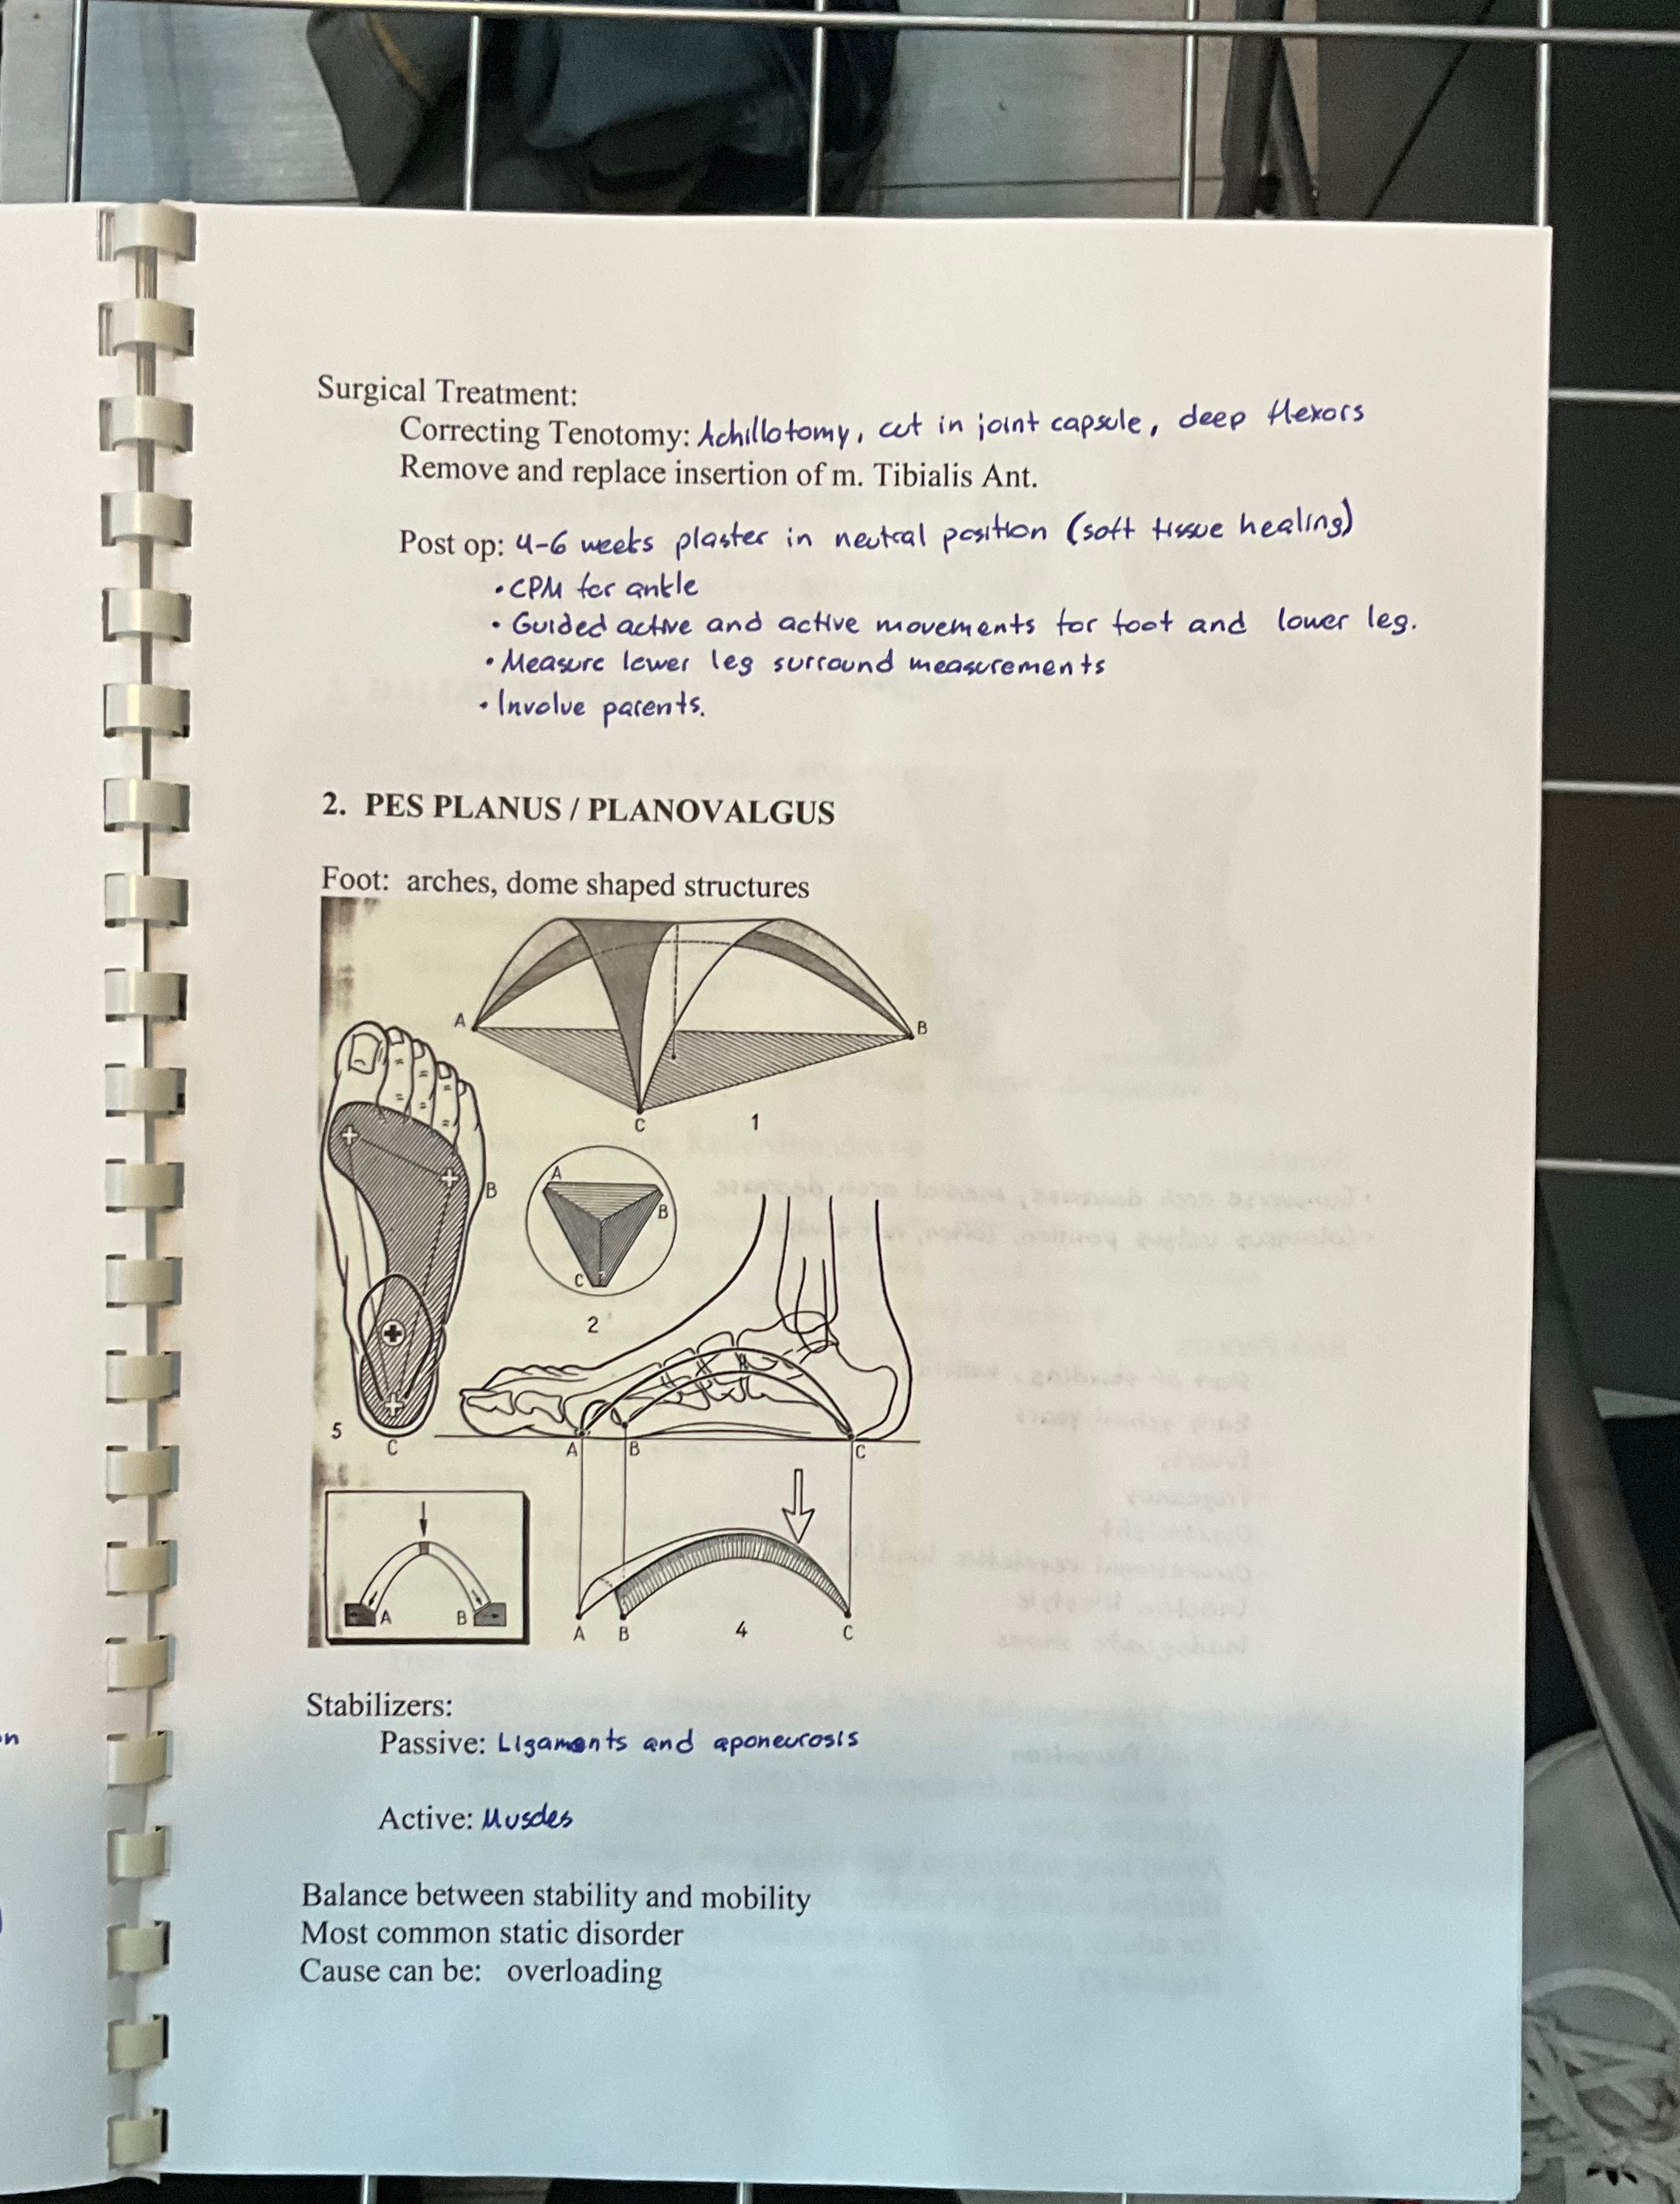 Surgical Treatment:
Correcting Tenotomy: Achillotomy, cut in joint capsule, deep flexors
Remove and replace insertion of m. Tibialis Ant.
Post op: 4-6 weeks plaster in neutral position (soft tissue healing)
• CPM for ankle
• Guided active and active movements for foot and lower leg.
• Measure lower leg surround measurements
• Involve parents.
2. PES PLANUS / PLANOVALGUS
Foot: arches, dome shaped structures
A
B
C
1
B
A
B
C
2
5
C
A
B
C
A
B
A
B
4
C
Stabilizers:
Passive: Ligaments and aponeurosis
Active: Muscles
Balance between stability and mobility
Most common static disorder
Cause can be: overloading